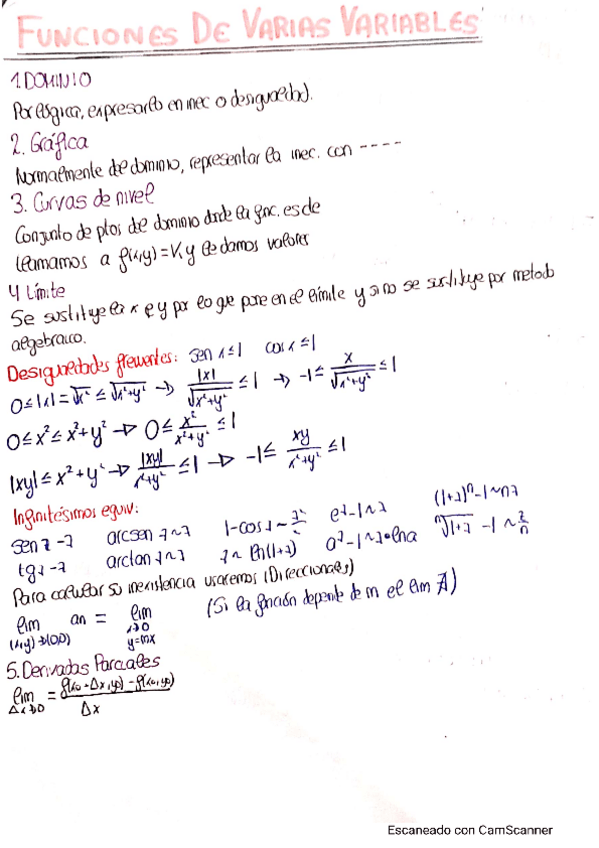 FUNCIONES DE VARIAS VARIABLES
1. DOMINIO
Por lógica, expresarlo en inec o desigualdad).
2. Gráfica
Normalmente del dominio, representar la inec. con ----
3. Curvas de nivel
Conjunto de ptos del dominio donde la func. es de
llamamos a f(x,y)=K, y le damos valores
4 Límite
Se sustituye la x e y por lo que pone en el límite y si no se sustituye por metodo
algebraico.
Desigualdades frewentes: sen x ≤ 1 cos x ≤ 1
0 ≤ |x| = √x² ≤ √x²+y² → |x|/√x²+y² ≤ 1 → -1 ≤ x/√x²+y² ≤ 1
0 ≤ x² ≤ x²+y² → 0 ≤ x²/x²+y² ≤ 1
|xy| ≤ x²+y² → |xy|/x²+y² ≤ 1 → -1 ≤ xy/x²+y² ≤ 1
Infinitésimos equiv:
sen z ~ z arcsen z ~ z 1-cos z ~ z²/2 e^z - 1 ~ z (1+z)^n - 1 ~ nz
tg z ~ z arctan z ~ z z ~ ln(1+z) a^z - 1 ~ z·lna ⁿ√1+z - 1 ~ z/n
Para calcular su inexistencia usaremos (Direccionales)
lim (x,y)→(0,0) an = lim x→0 y=mx (Si la función depende de m el lim ∄)
5. Derivadas Parciales
lim Δx→0 = f(x0+Δx, y0) - f(x0, y0) / Δx
Escaneado con CamScanner